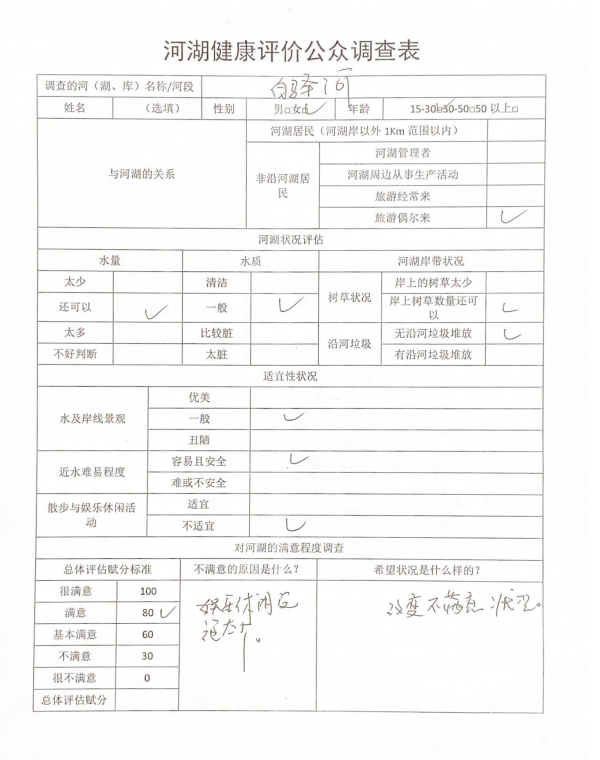 河湖健康评价公众调查表
调查的河（湖、库）名称/河段 白 河
姓名 （选填） 性别 男□女□✓ 年龄 15-30□✓30-50□50 以上□
与河湖的关系
河湖居民（河湖岸以外 1Km 范围以内）
非沿河湖居民
河湖管理者
河湖周边从事生产活动
旅游经常来
旅游偶尔来 ✓
河湖状况评估
水量 水质 河湖岸带状况
太少 清洁 树草状况 岸上的树草太少
还可以 ✓ 一般 ✓ 岸上树草数量还可以 ✓
太多 比较脏 沿河垃圾 无沿河垃圾堆放 ✓
不好判断 太脏 有沿河垃圾堆放
适宜性状况
水及岸线景观 优美
一般 ✓
丑陋
近水难易程度 容易且安全 ✓
难或不安全
散步与娱乐休闲活动 适宜
不适宜 ✓
对河湖的满意程度调查
总体评估赋分标准 不满意的原因是什么？ 希望状况是什么样的？
很满意 100
满意 80 ✓
基本满意 60
不满意 30
很不满意 0
总体评估赋分
娱乐休闲区
太少。
改变不满意状况。